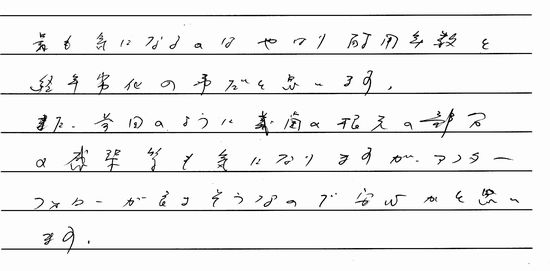 最も気になるのはやはり耐用年数と
経年劣化の事だと思います。
また、今回のように義歯の根元の部分
の感染等も気になりますが、アフター
フォローが良さそうなので安心かと思い
ます。